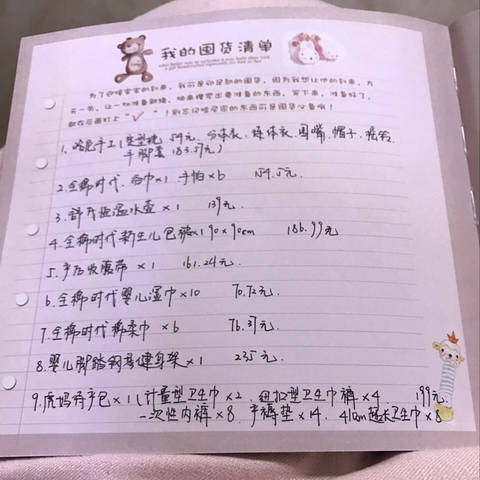 我的囤货清单
为了迎接宝宝的到来，我可是卯足劲的囤货，因为我想让他的到来，大
在后面打上“✓”！别忘记给买家的东西可是囤货心看哦！
手脚套 183.57元）
2.全棉时代 浴巾×1 手帕×6 154.5元.
3.舒氏恒温水壶×1 139元.
4.全棉时代新生儿包被×1 90×90cm 186.99元
5.产后收腹带 ×1 161.24元.
6.全棉时代婴儿湿巾×10 70.72元.
7.全棉时代棉柔巾 ×6 76.37元.
8.婴儿脚踏钢琴健身架×1 235元.
9.虎妈待产包×1（计量型卫生巾×2. 纽扣型卫生巾裤×4. 199元.
一次性内裤×8. 产褥垫×14. 41cm超长卫生巾×8